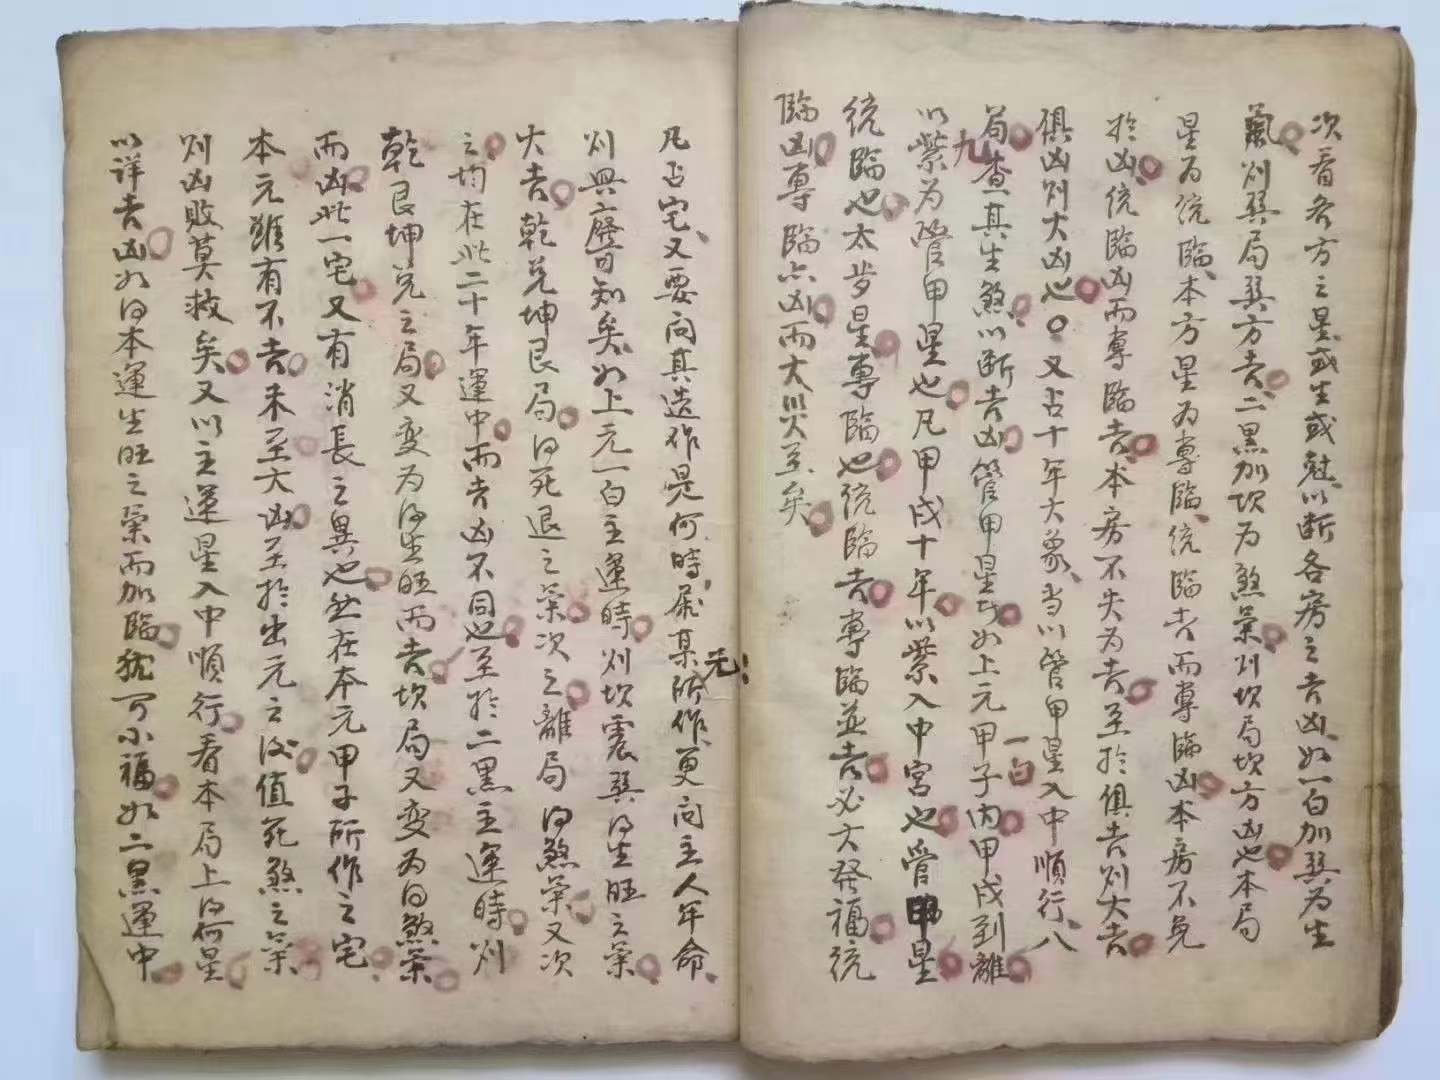 次看各方之星或生或尅以断各房之吉凶如一白加巽为生
氣则巽局巽方吉二黑加坎为煞氣则坎局坎方凶也本局
星为统臨本方星为專臨统臨吉而專臨凶本房不免
於凶统臨凶而專臨吉本房不失为吉至於俱吉则大吉
俱凶则大凶也〇又占十年大象当以管甲星入中順行八
局查其生煞以断吉凶管甲星者如上元甲子一白内甲戌到離
以九紫为管甲星也凡甲戌十年以紫入中宫也管甲星
统臨也太歩星專臨也统臨吉專臨並吉必大发福统
臨凶專臨亦凶而大災至矣
凡占宅又要问其造作是何時属某元所作更问主人年命
则興廢可知矣如上元一白主運時则坎震巽得生旺之氣
大吉乾兑坤艮局得死退之氣次之離局得煞氣又次
之均在此二十年運中而吉凶不同也至於二黑主運時则
乾艮坤兑之局又变为得生旺而吉坎局又变为得煞氣
而凶此一宅又有消長之異也然在本元甲子所作之宅
本元雖有不吉未至大凶至於出元之後值死煞之氣
则凶敗莫救矣又以主運星入中順行看本局上得何星
以详吉凶如得本運生旺之氣而加臨犹可小福如二黑運中